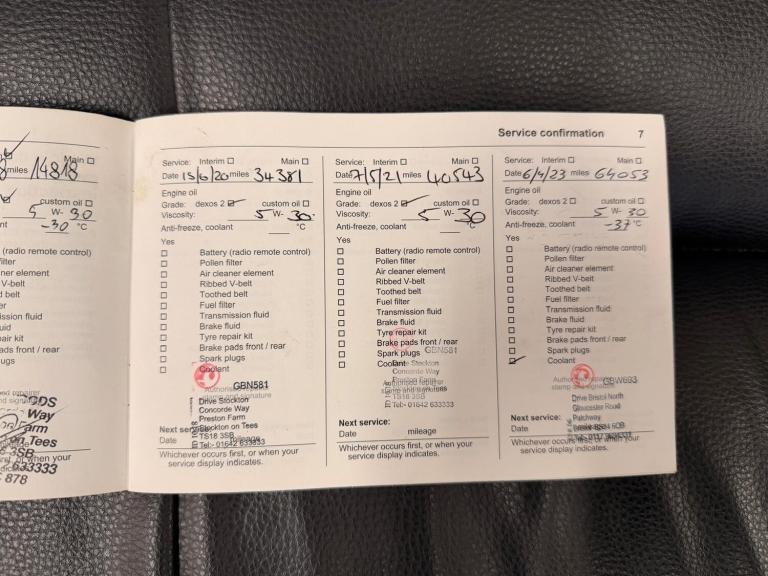 Main ☐
miles 14818
custom oil ☐
5 W- 30
-30 °C
(radio remote control)
filter
ner element
V-belt
d belt
er
ssion fluid
uid
air kit
ads front / rear
ugs
Way
arm
on Tees
3SB
633333
878
Service confirmation 7
Service: Interim ☐ Main ☐
Date 15/6/20 miles 34381
Engine oil
Grade: dexos 2 ☑ custom oil ☐
Viscosity: 5 W- 30
Anti-freeze, coolant °C
Yes
☐ Battery (radio remote control)
☐ Pollen filter
☐ Air cleaner element
☐ Ribbed V-belt
☐ Toothed belt
☐ Fuel filter
☐ Transmission fluid
☐ Brake fluid
☐ Tyre repair kit
☐ Brake pads front / rear
☐ Spark plugs
☐ Coolant
GBN581
Drive Stockton
Concorde Way
Preston Farm
Stockton on Tees
TS18 3SB
Tel:- 01642 633333
Next service:
Date mileage
Whichever occurs first, or when your
service display indicates.
Service: Interim ☐ Main ☐
Date 7/5/21 miles 40543
Engine oil
Grade: dexos 2 ☑ custom oil ☐
Viscosity: 5 W- 30
Anti-freeze, coolant °C
Yes
☐ Battery (radio remote control)
☐ Pollen filter
☐ Air cleaner element
☐ Ribbed V-belt
☐ Toothed belt
☐ Fuel filter
☐ Transmission fluid
☐ Brake fluid
☐ Tyre repair kit
☐ Brake pads front / rear
☐ Spark plugs
☐ Coolant
GBN581
Drive Stockton
Concorde Way
Preston Farm
Authorised repairer
Tel:- 01642 633333
Next service:
Date mileage
Whichever occurs first, or when your
service display indicates.
Service: Interim ☐ Main ☐
Date 6/4/23 miles 64053
Engine oil
Grade: dexos 2 ☐ custom oil ☐
Viscosity: 5 W- 30
Anti-freeze, coolant -37 °C
Yes
☐ Battery (radio remote control)
☐ Pollen filter
☐ Air cleaner element
☐ Ribbed V-belt
☐ Toothed belt
☐ Fuel filter
☐ Transmission fluid
☐ Brake fluid
☐ Tyre repair kit
☐ Brake pads front / rear
☐ Spark plugs
☑ Coolant
GBW693
Drive Bristol North
Gloucester Road
Patchway
Whichever occurs first, or when your
service display indicates.